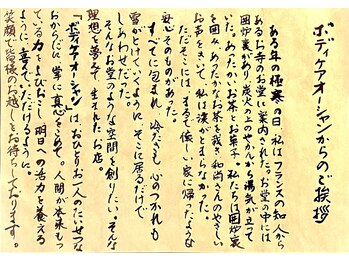 ボディケアオーシャンからのご挨拶
ある年、極寒の日、私はフランスの知人から
あるお寺のお堂に案内された。お堂の中には
囲炉裏があり、炭火の上のやかんから湯気が立って
いた。あったかいお茶とお菓子。私たちは囲炉裏
を囲み、あたたかなお茶を戴き和尚さんのやさしい
お声をきいて、私は涙がとまらなかった。
ただそこには、まるで懐しい家に帰ったような
安心そのものがあった。
すべてに包まれ 冷たさも、心のつかれも
雪がとけていくように、そこに居るだけで
しあわせだった。
そんなお堂のような空間を創りたい。そんな
理想を夢みて生まれたお店。
『ボディケアオーシャン』は、おひとりお一人のたいせつな
おからだに、掌に真心をこめて。人間が本来もっ
ている力をよびおこし 明日への活力を養える
ように、喜んでいただけるように、
笑顔で皆様のお越しをお待ちしております。